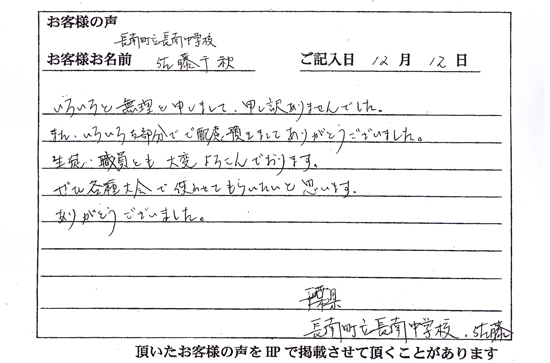 お客様の声
長南町立長南中学校
お客様お名前 佐藤千秋 ご記入日 12月 12日
いろいろと無理と申しまして、申し訳ありませんでした。
また、いろいろな部分でご配慮頂きましてありがとうございました。
生徒・職員とも大変よろこんでおります。
ぜひ各種大会で使わせてもらいたいと思います。
ありがとうございました。
千葉県
長南町立長南中学校、佐藤
頂いたお客様の声をHPで掲載させて頂くことがあります